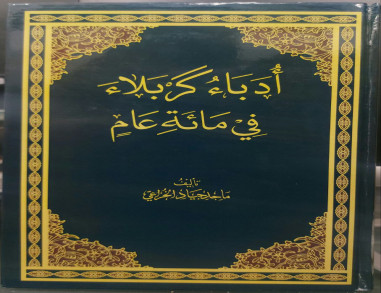 أُدَبَاءُ كَرْبَلَاءَ
فِي مَائَةِ عَامٍ
تأليف
ماجد جياد الخزاعي